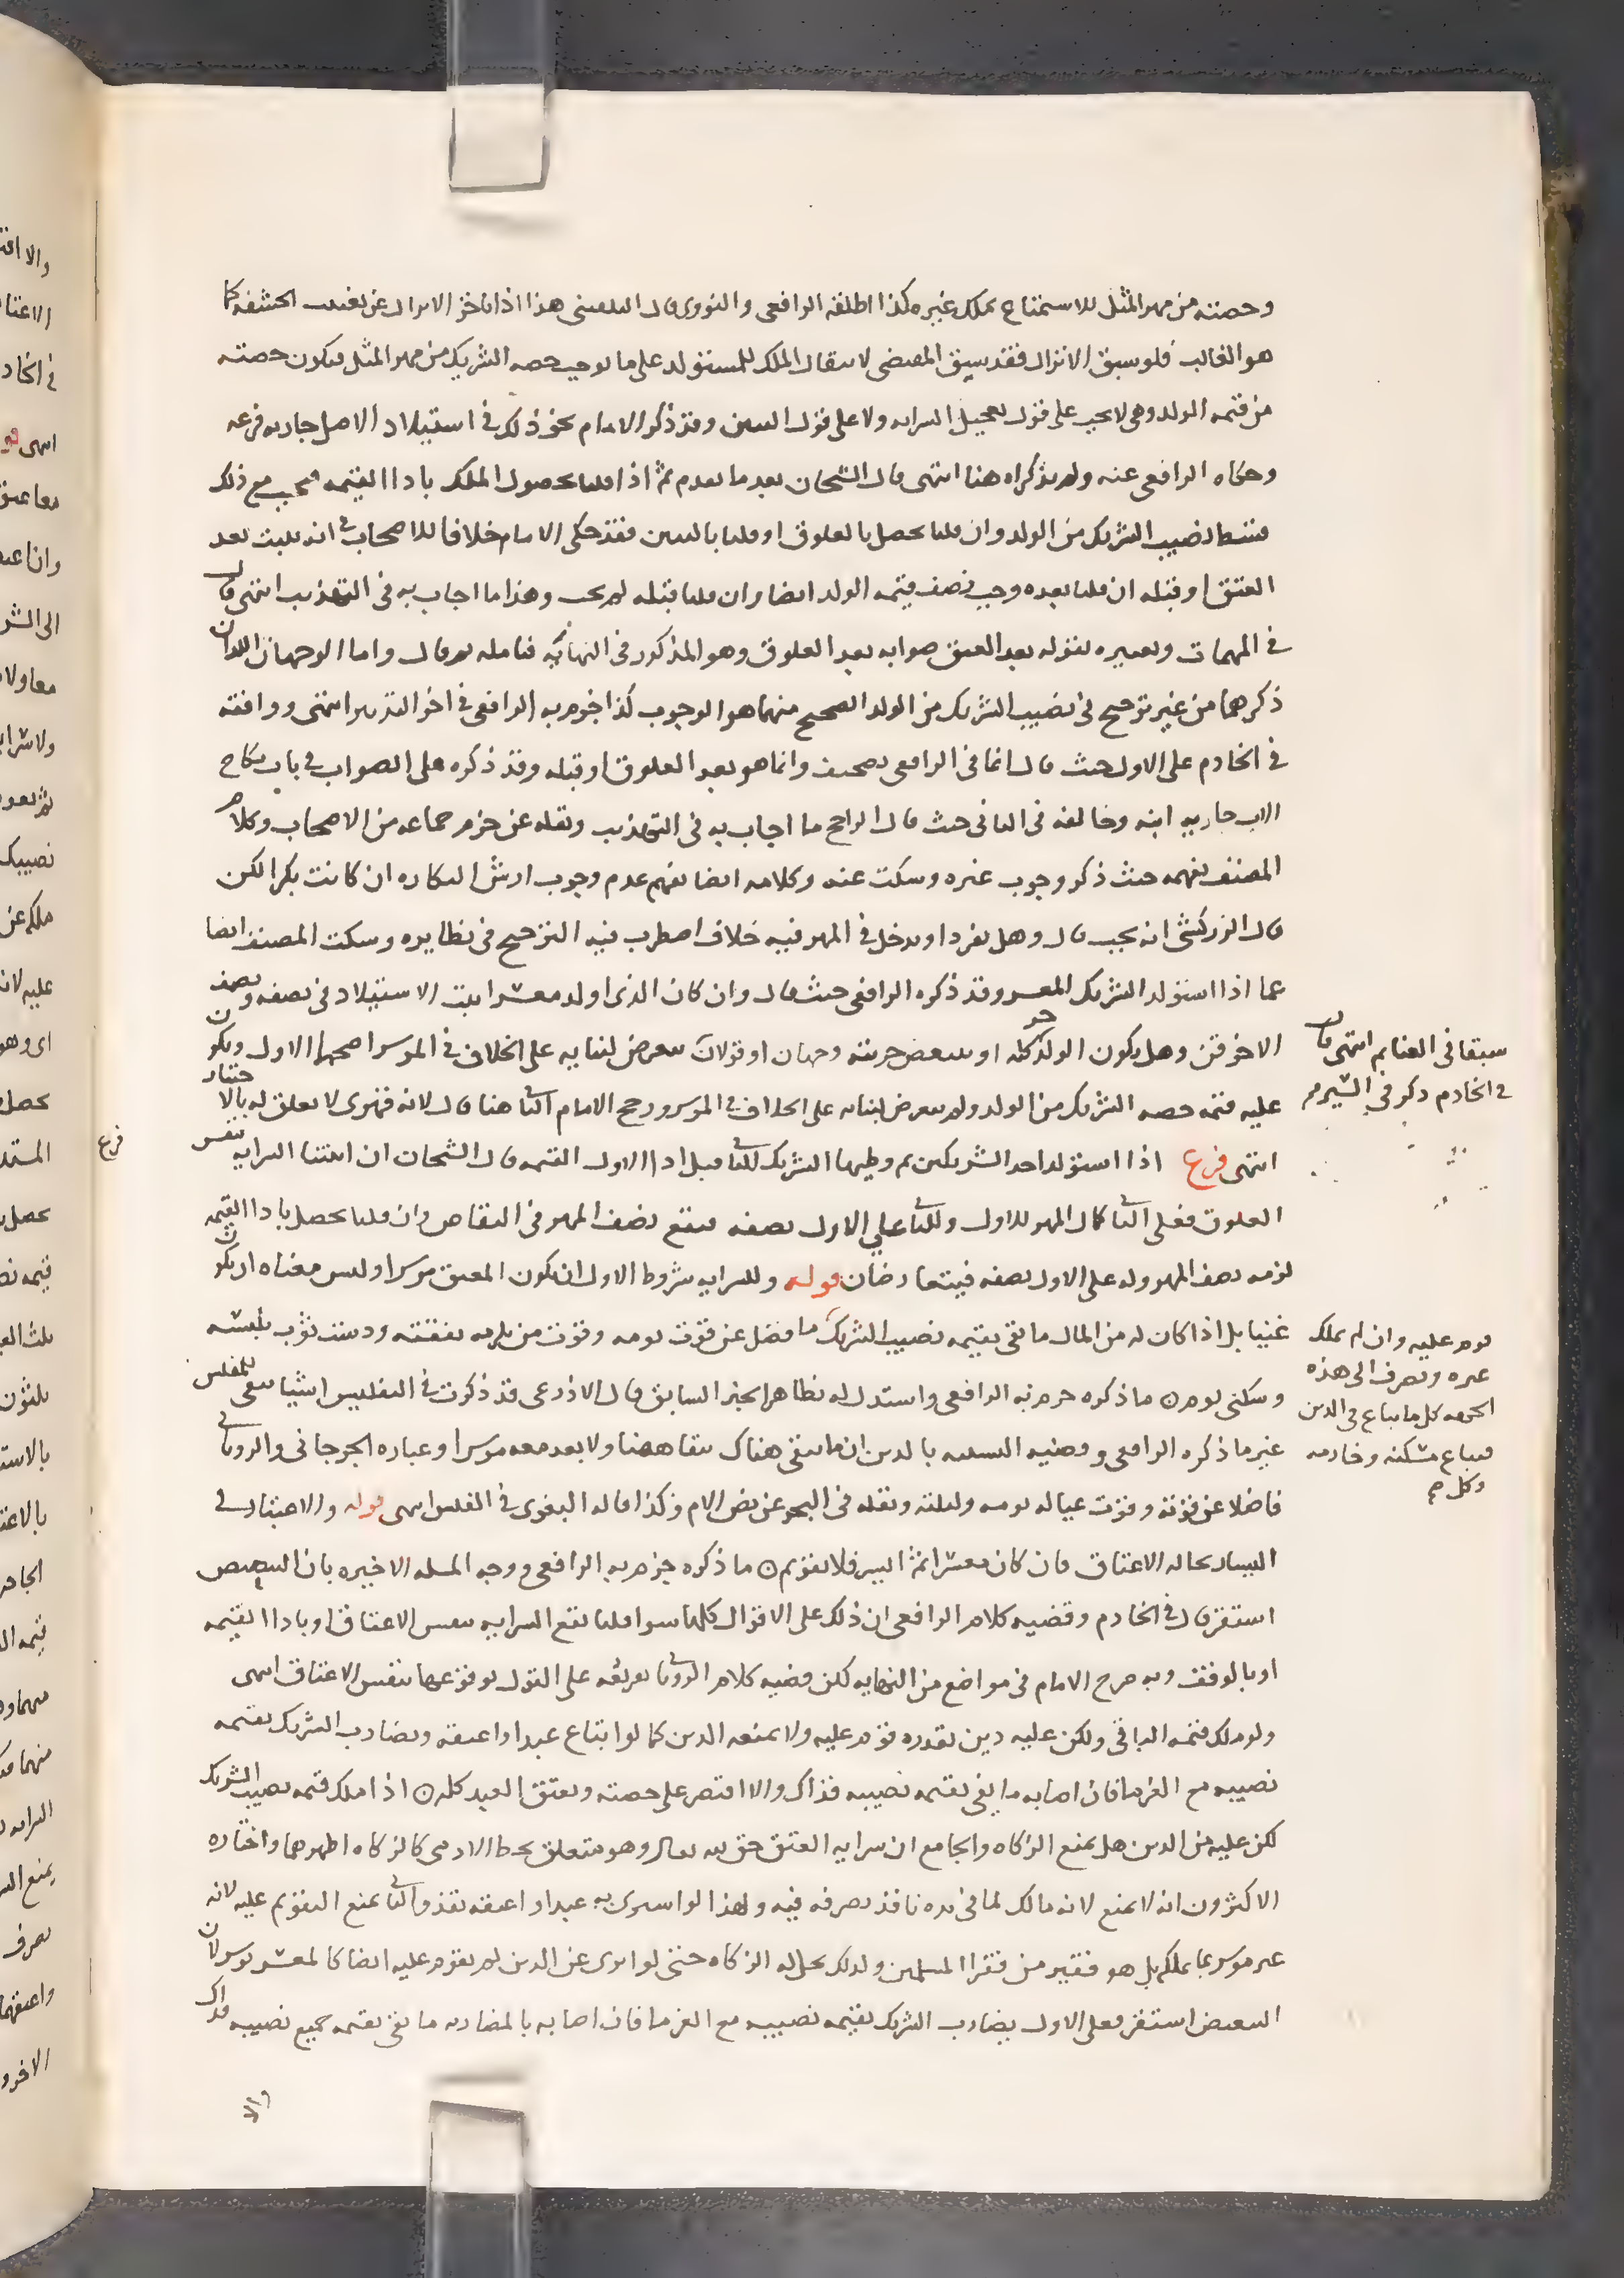 وحصته من مهر المثل للاستمتاع بملك غيره كذا اطلقه الرافعي والنووي قال البلقيني هذا اذا تاخر الانزال عن تغييب الحشفة كما
هو الغالب فلو سبق الانزال فقد سبق المقتضى لانتقال الملك للمستولد على ما يوجب حصة الشريك من مهر المثل فيكون حصته
من قيمة الولد وهي لا يجب على قول تعجيل السراية ولا على قول التبين وقد ذكر الامام نحو ذلك في استيلاد الاصل جارية فرعه
وحكاه الرافعي عنه ولم يذكراه هنا انتهى قال الشيخان بعد ما تقدم ثم اذا قلنا بحصول الملك باداء القيمة فيجب مع ذلك
قسط نصيب الشريك من الولد وان قلنا يحصل بالعلوق او قلنا بالتبين فقد حكى الامام خلافا للاصحاب في انه يثبت بعد
العتق او قبله ان قلنا بعده وجب نصف قيمة الولد ايضا وان قلنا قبله لم يجب وهذا ما اجاب به في التهذيب انتهى قال
في المهمات وتعبيره بقوله بعد العتق صوابه بعد العلوق وهو المذكور في النهاية فتامله ثم قال واما الوجهان اللذان
ذكرهما من غير ترجيح في نصيب الشريك من الولد الصحيح منهما هو الوجوب كذا جزم به الرافعي في اخر التدبير انتهى ووافقه
في الخادم على الاول حيث قال انما في الرافعي تصحيف وانما هو بعد العلوق او قبله وقد ذكره على الصواب في باب نكاح
الاب جارية ابنه وخالفه في الثاني حيث قال الراجح ما اجاب به في التهذيب ونقله عن جزم جماعة من الاصحاب وكلام
المصنف يفهمه حيث ذكر وجوب غيره وسكت عنه وكلامه ايضا يفهم عدم وجوب ارش البكارة ان كانت بكرا لكن
قال الزركشي انه يجب قال وهل يفرد او يدخل في المهر فيه خلاف اضطرب فيه الترجيح في نظايره وسكت المصنف ايضا
عما اذا استولد الشريك المعسر وقد ذكره الرافعي حيث قال وان كان الذي اولد معسرا يثبت الاستيلاد في نصفه ونصف
الاخر قن وهل يكون الولد كله حر او يتبعض حريته وجهان او قولان سبقا في الغنايم انتهى قال
في الخادم ذكر في السير
تعرض لبنايه على الخلاف في الموسر اصحهما الاول ويكون
عليه قيمة حصة الشريك من الولد ولم يتعرض لبنايه على الخلاف في الموسر ورجح الامام الثاني هنا قال لانه قهري لا تعلق له بالاختيار
انتهى فرع اذا استولد احد الشريكين ثم وطيها الشريك الثاني قبل اداء الاول القيمة قال الشيخان ان اثبتنا السراية بنفس
فرع
العلوق فعلى الثاني كمال المهر للاول وللثاني على الاول نصفه فيقع نصف المهر في التقاص وان قلنا يحصل باداء القيمة
لزمه نصف المهر وله على الاول نصفه فيتعارضان قوله وللسراية شروط الاول ان يكون المعتق موسرا وليس معناه ان يكون
غنيا بل اذا كان له من المال ما يفي بقيمة نصيب الشريك قوم عليه وان لم يملك
غيره ويصرف الى هذه
الجهة كل ما يباع في الدين
فيباع مسكنه وخادمه
وكل
ما فضل عن قوت يومه وقوت من يلزمه نفقته ودست ثوب يلبسه
وسكنى يوم ما ذكره جزم به الرافعي واستدل له بظاهر الخبر السابق قال الاذرعي قد ذكرت في التفليس اشيا تبقى للمفلس
غير ما ذكره الرافعي وقضية التشبيه بالدين ان ما يبقى هناك يبقى هاهنا ولا يعد معه موسرا وعبارة الجرجاني والروياني
فاضلا عن قوته وقوت عياله يومه وليلته ونقله في البحر عن نص الام وكذا قاله البغوي في الفلس انتهى قوله والاعتبار في
اليسار بحالة الاعتاق فان كان معسرا ثم ايسر فلا تقويم ما ذكره جزم به الرافعي ووجه المسلة الاخيرة بان التبعيض
استقر قال في الخادم وقضية كلام الرافعي ان ذلك على الاقوال كلها سوا قلنا تقع السراية بنفس الاعتاق او باداء القيمة
او بالوقف وبه صرح الامام في مواضع من النهاية لكن قضية كلام الروياني تفريعه على القول بوقوعها بنفس الاعتاق انتهى
ولو ملك قيمة الباقي ولكن عليه دين بقدره قوم عليه ولا يمنعه الدين كما لو ابتاع عبدا واعتقه ويضارب الشريك بقيمة
نصيبه مع الغرما فان اصابه ما يفي بقيمة نصيبه فذاك والا اقتصر على حصته ويعتق العبد كله اذا ملك قيمة نصيب الشريك
لكن عليه من الدين هل يمنع الزكاة والجامع ان سراية العتق حق لله تعالى وهو متعلق بحظ الادمي كالزكاة اظهرهما واختاره
الاكثرون انه لا يمنع لانه مالك لما في يده نافذ تصرفه فيه ولهذا لو اشترى به عبدا واعتقه نفذ والثاني يمنع التقويم عليه لانه
غير موسر بما يملكه بل هو فقير من فقراء المسلمين ولذلك يحل له الزكاة حتى لو ابرى عن الدين لم يقوم عليه ايضا كالمعسر يوسر لان
التبعيض استقر فعلى الاول يضارب الشريك بقيمة نصيبه مع الغرما فان اصابه بالمضاربة ما يفي بقيمة جميع نصيبه فذاك
والا